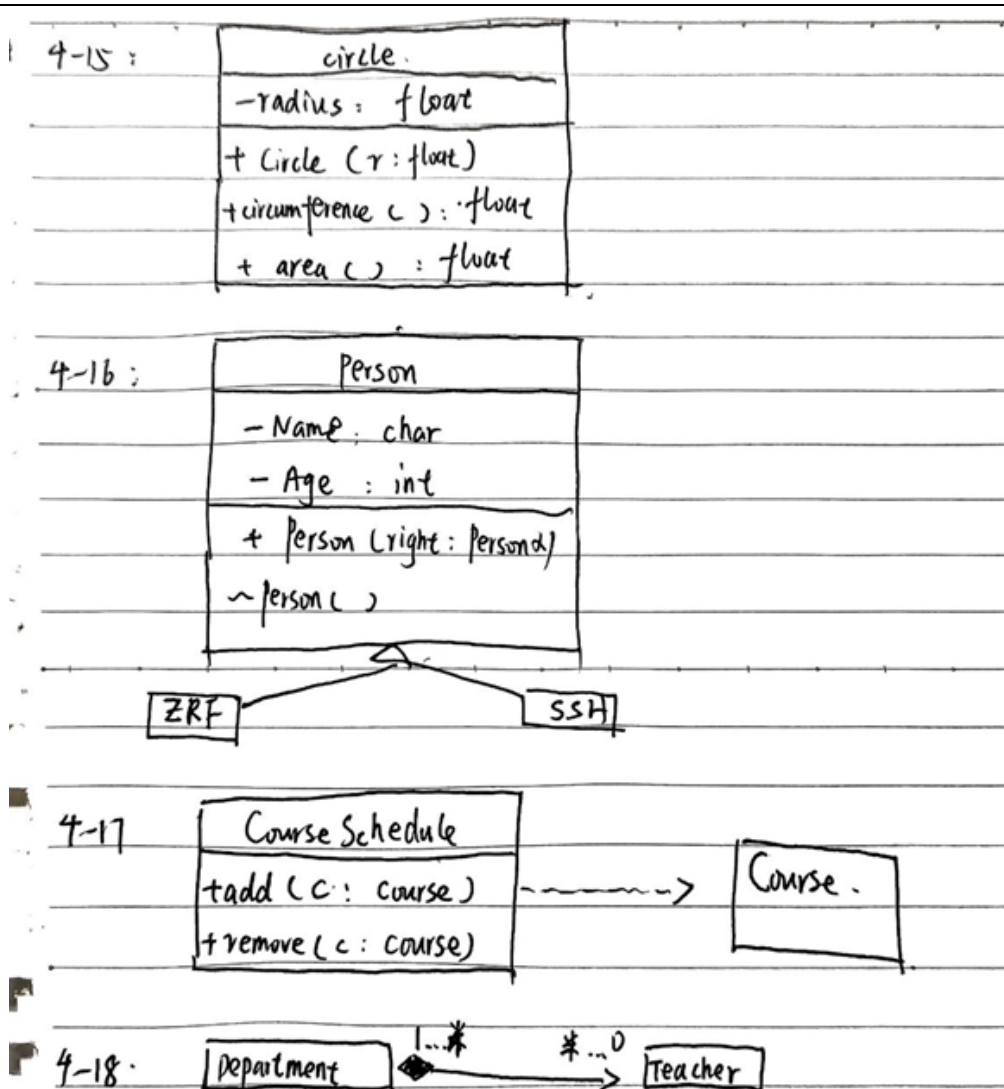 4-15 :
circle.
-radius : float
+ Circle (r : float)
+circumference ( ) : float
+ area ( ) : float
4-16 :
Person
- Name : char
- Age : int
+ Person (right : Person&)
~ Person ( )
ZRF
SSH
4-17
Course Schedule
+add (c : course)
+remove (c : course)
Course.
1...*
*...0
4-18.
Department
Teacher